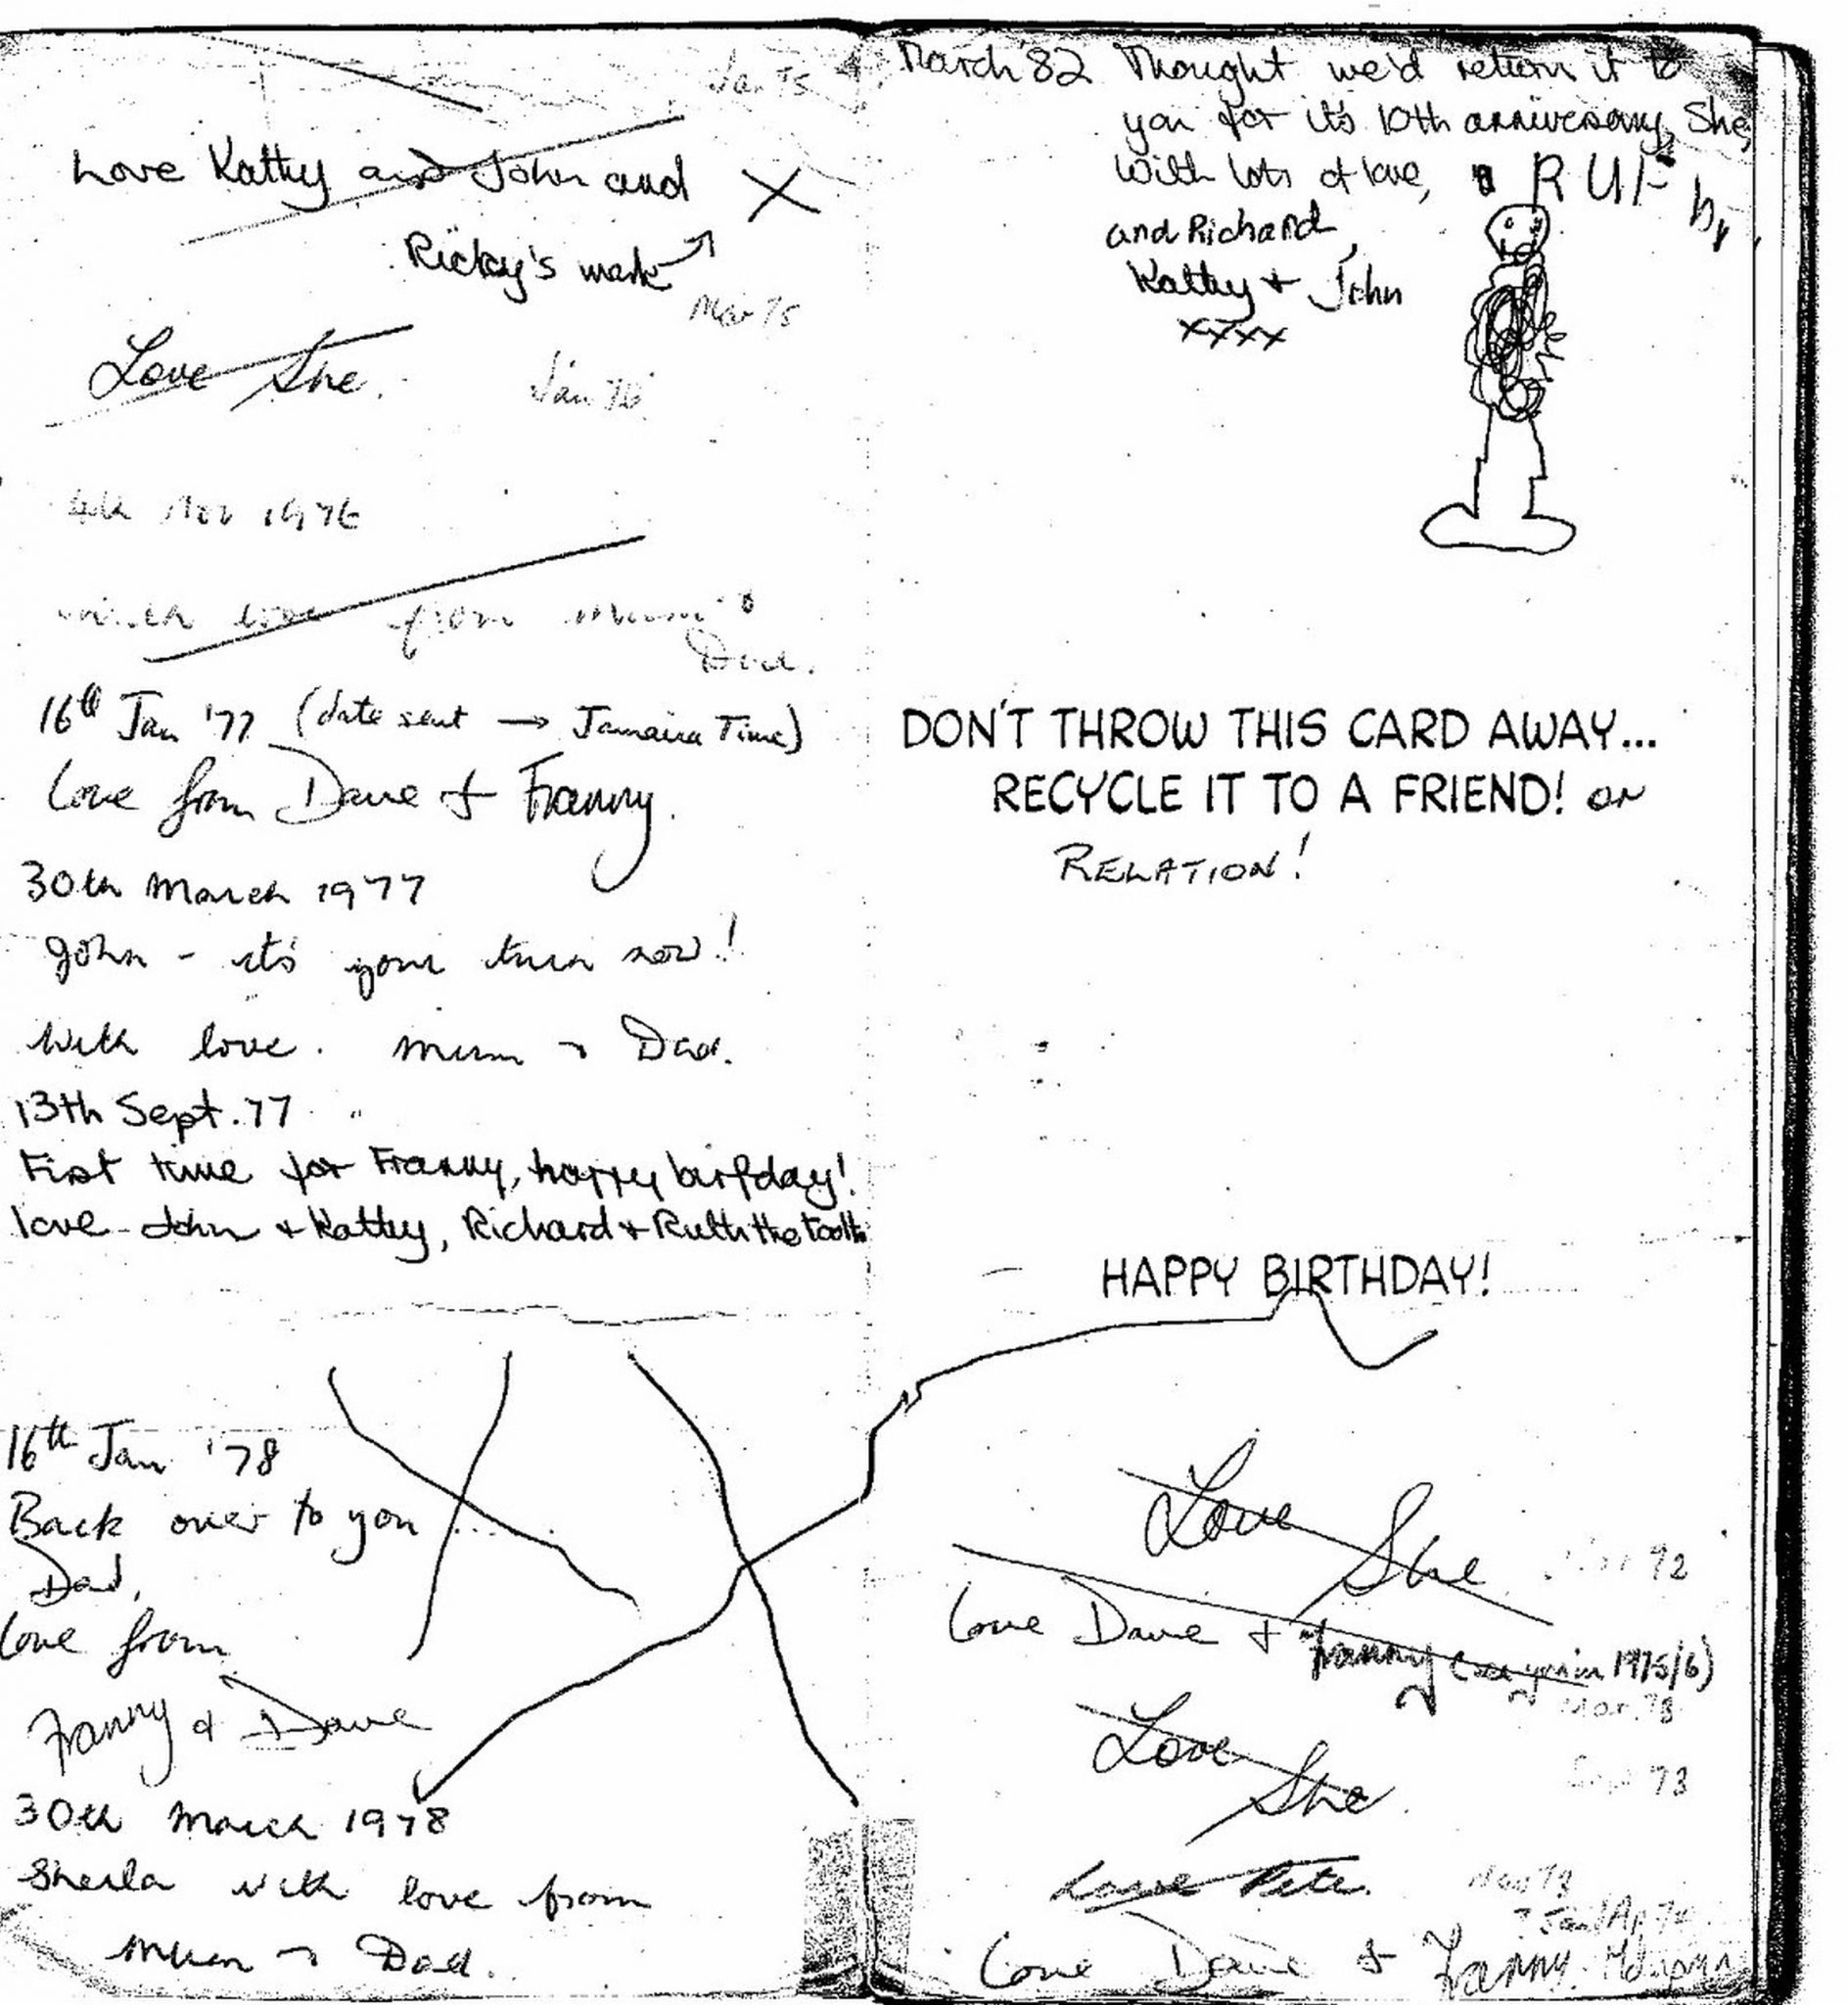 Jan 75
Love Kathy and John and X
Ricky's mark
Mar 75
Love She.
Jan 76
4th Nov 1976
with love from Mum &
Dad.
16th Jan '77 (date sent → Jamaica Time)
Love from Dave & Franny.
30th March 1977
John - it's your turn now!
With love. Mum & Dad.
13th Sept. 77
First time for Franny, happy birfday!
love John + Kathy, Richard + Ruth the tooth
16th Jan '78
Back over to you ....
Dad,
Love from
Franny & Dave
30th March 1978
Sheila with love from
Mum & Dad.
March '82 Thought we'd return it to
you for it's 10th anniversary, She,
With lots of love,
and Richard,
Kathy + John
xxxx
by
DON'T THROW THIS CARD AWAY...
RECYCLE IT TO A FRIEND! or
RELATION!
HAPPY BIRTHDAY!
Love
She
Love Dave & Franny 1975/6)
Mar. 73
Love
She
Sep 73
Love Pete.
Love Dave & Franny.